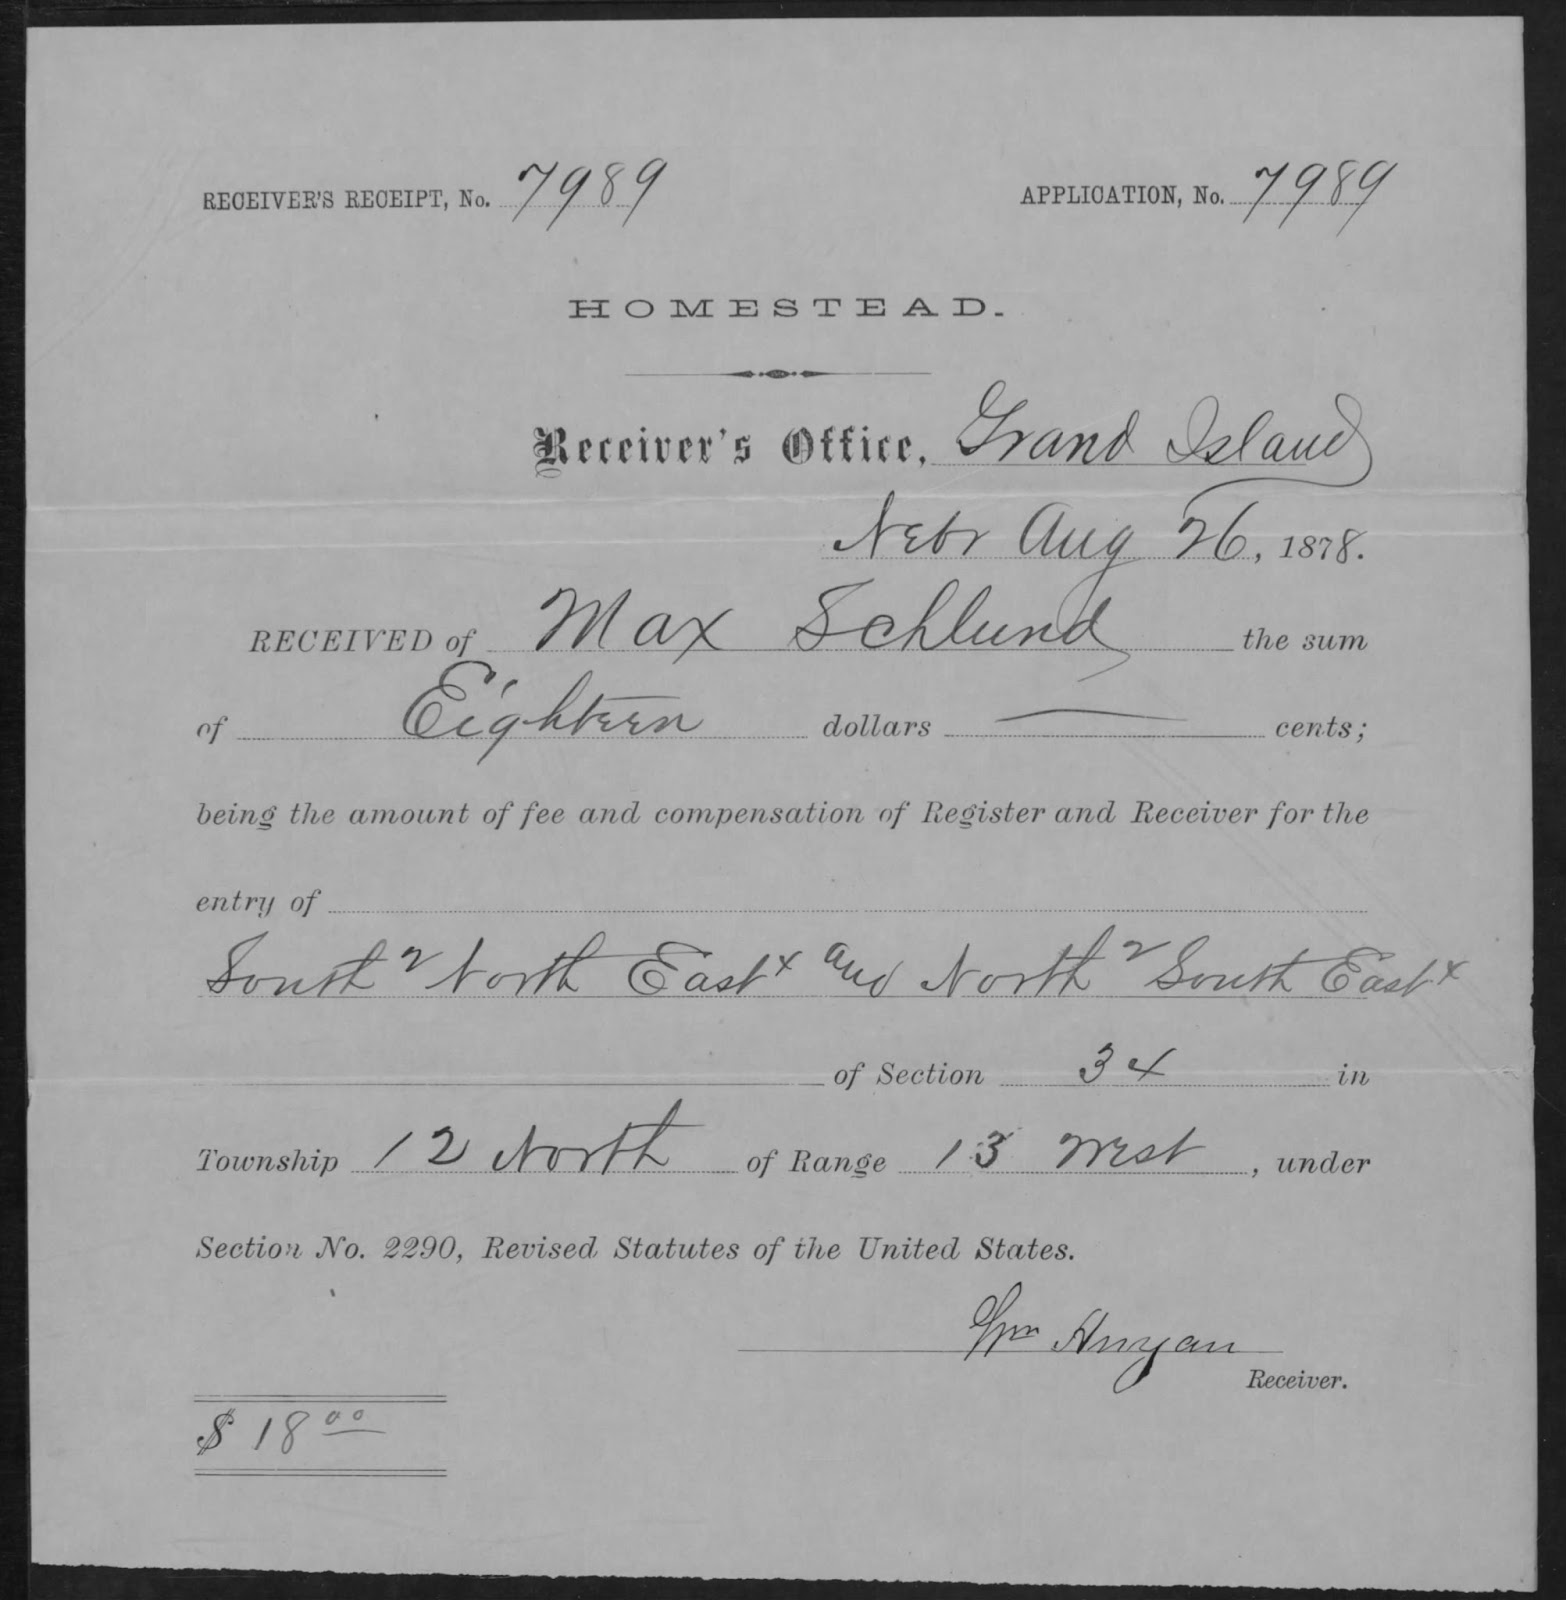 RECEIVER'S RECEIPT, No. 7989 APPLICATION, No. 7989
HOMESTEAD.
Receiver's Office, Grand Island
Nebr Aug 26, 1878.
RECEIVED of Max Schlund the sum
of Eighteen dollars — cents;
being the amount of fee and compensation of Register and Receiver for the
entry of
South 2 North East 4 and North 2 South East 4
of Section 34 in
Township 12 North of Range 13 West, under
Section No. 2290, Revised Statutes of the United States.
Wm Anyan
Receiver.
$ 18 00